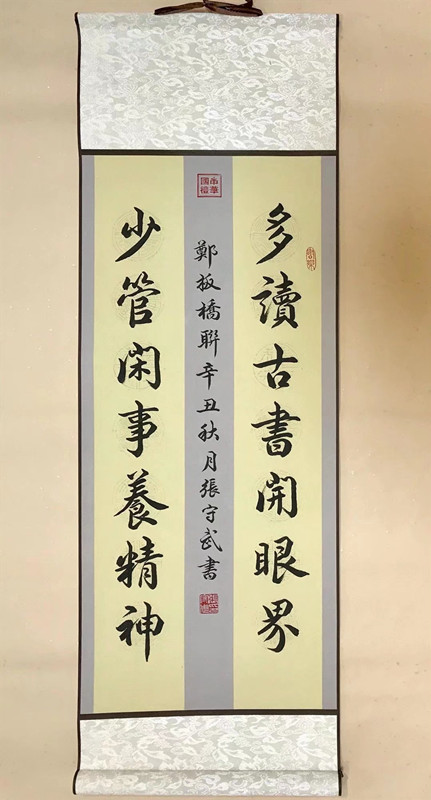 多讀古書開眼界
鄭板橋聯辛丑秋月張守武書
少管閑事養精神